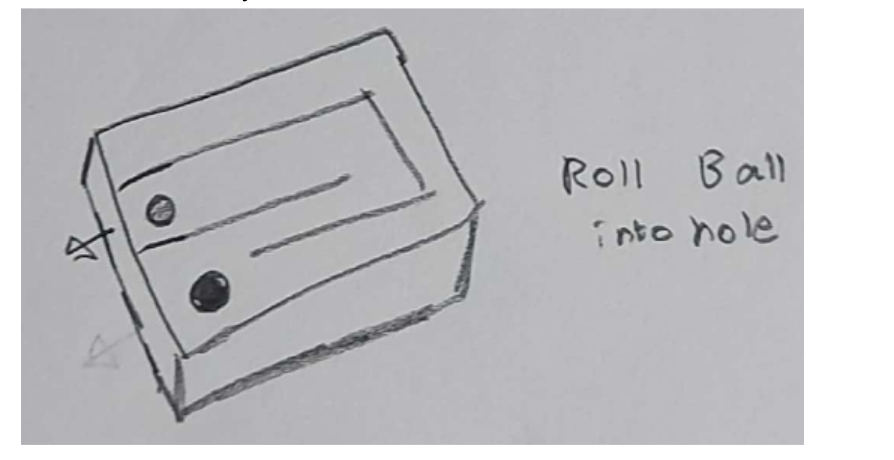 Roll Ball
into hole